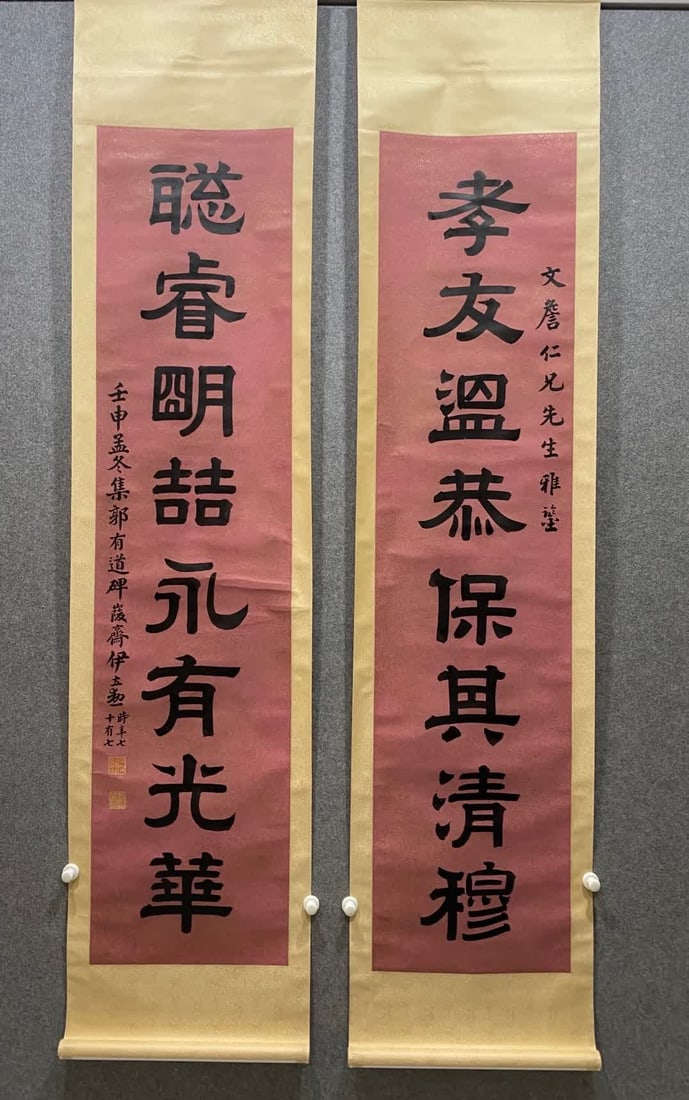 文詹仁兄先生雅鑒
孝友溫恭保其清穆
聡睿朙喆永有光華
壬申孟冬集郭有道碑葰齋伊立勳
時年七
十有七